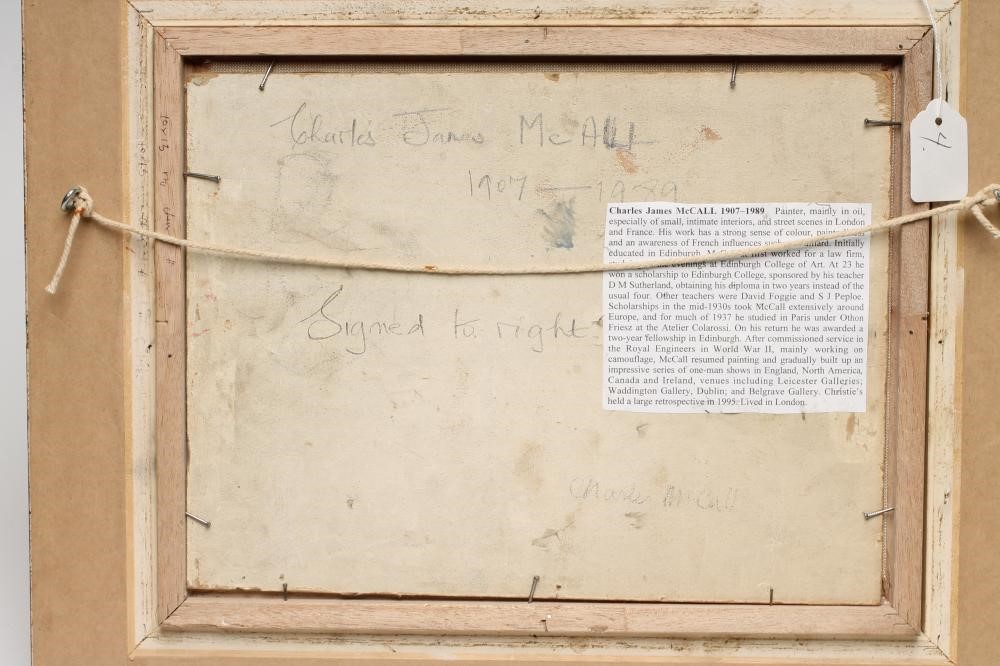 Charles James McCALL
1907 — 1989
4.
Charles James McCALL 1907–1989 Painter, mainly in oil,
especially of small, intimate interiors, and street scenes in London
and France. His work has a strong sense of colour,
and an awareness of French influences Initially
educated in Edinburgh, first worked for a law firm,
evenings at Edinburgh College of Art. At 23 he
won a scholarship to Edinburgh College, sponsored by his teacher
D M Sutherland, obtaining his diploma in two years instead of the
usual four. Other teachers were David Foggie and S J Peploe.
Scholarships in the mid-1930s took McCall extensively around
Europe, and for much of 1937 he studied in Paris under Othon
Friesz at the Atelier Colarossi. On his return he was awarded a
two-year fellowship in Edinburgh. After commissioned service in
the Royal Engineers in World War II, mainly working on
camouflage, McCall resumed painting and gradually built up an
impressive series of one-man shows in England, North America,
Canada and Ireland, venues including Leicester Galleries;
Waddington Gallery, Dublin; and Belgrave Gallery. Christie's
held a large retrospective in 1995. Lived in London.
Signed to right
Charles McCall